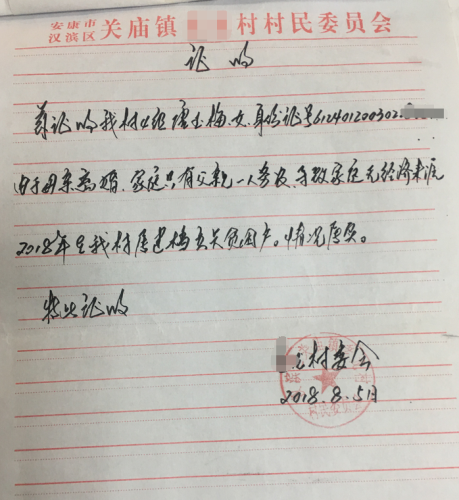 安康市汉滨区关庙镇 村村民委员会
证明
兹证明我村七组唐小梅,女,身份证号612401200302
由于母亲离婚、家庭只有父亲一人务农、导致家庭无经济来源
2018年在我村属建档立卡贫困户。情况属实。
特此证明
村委会
2018.8.5日